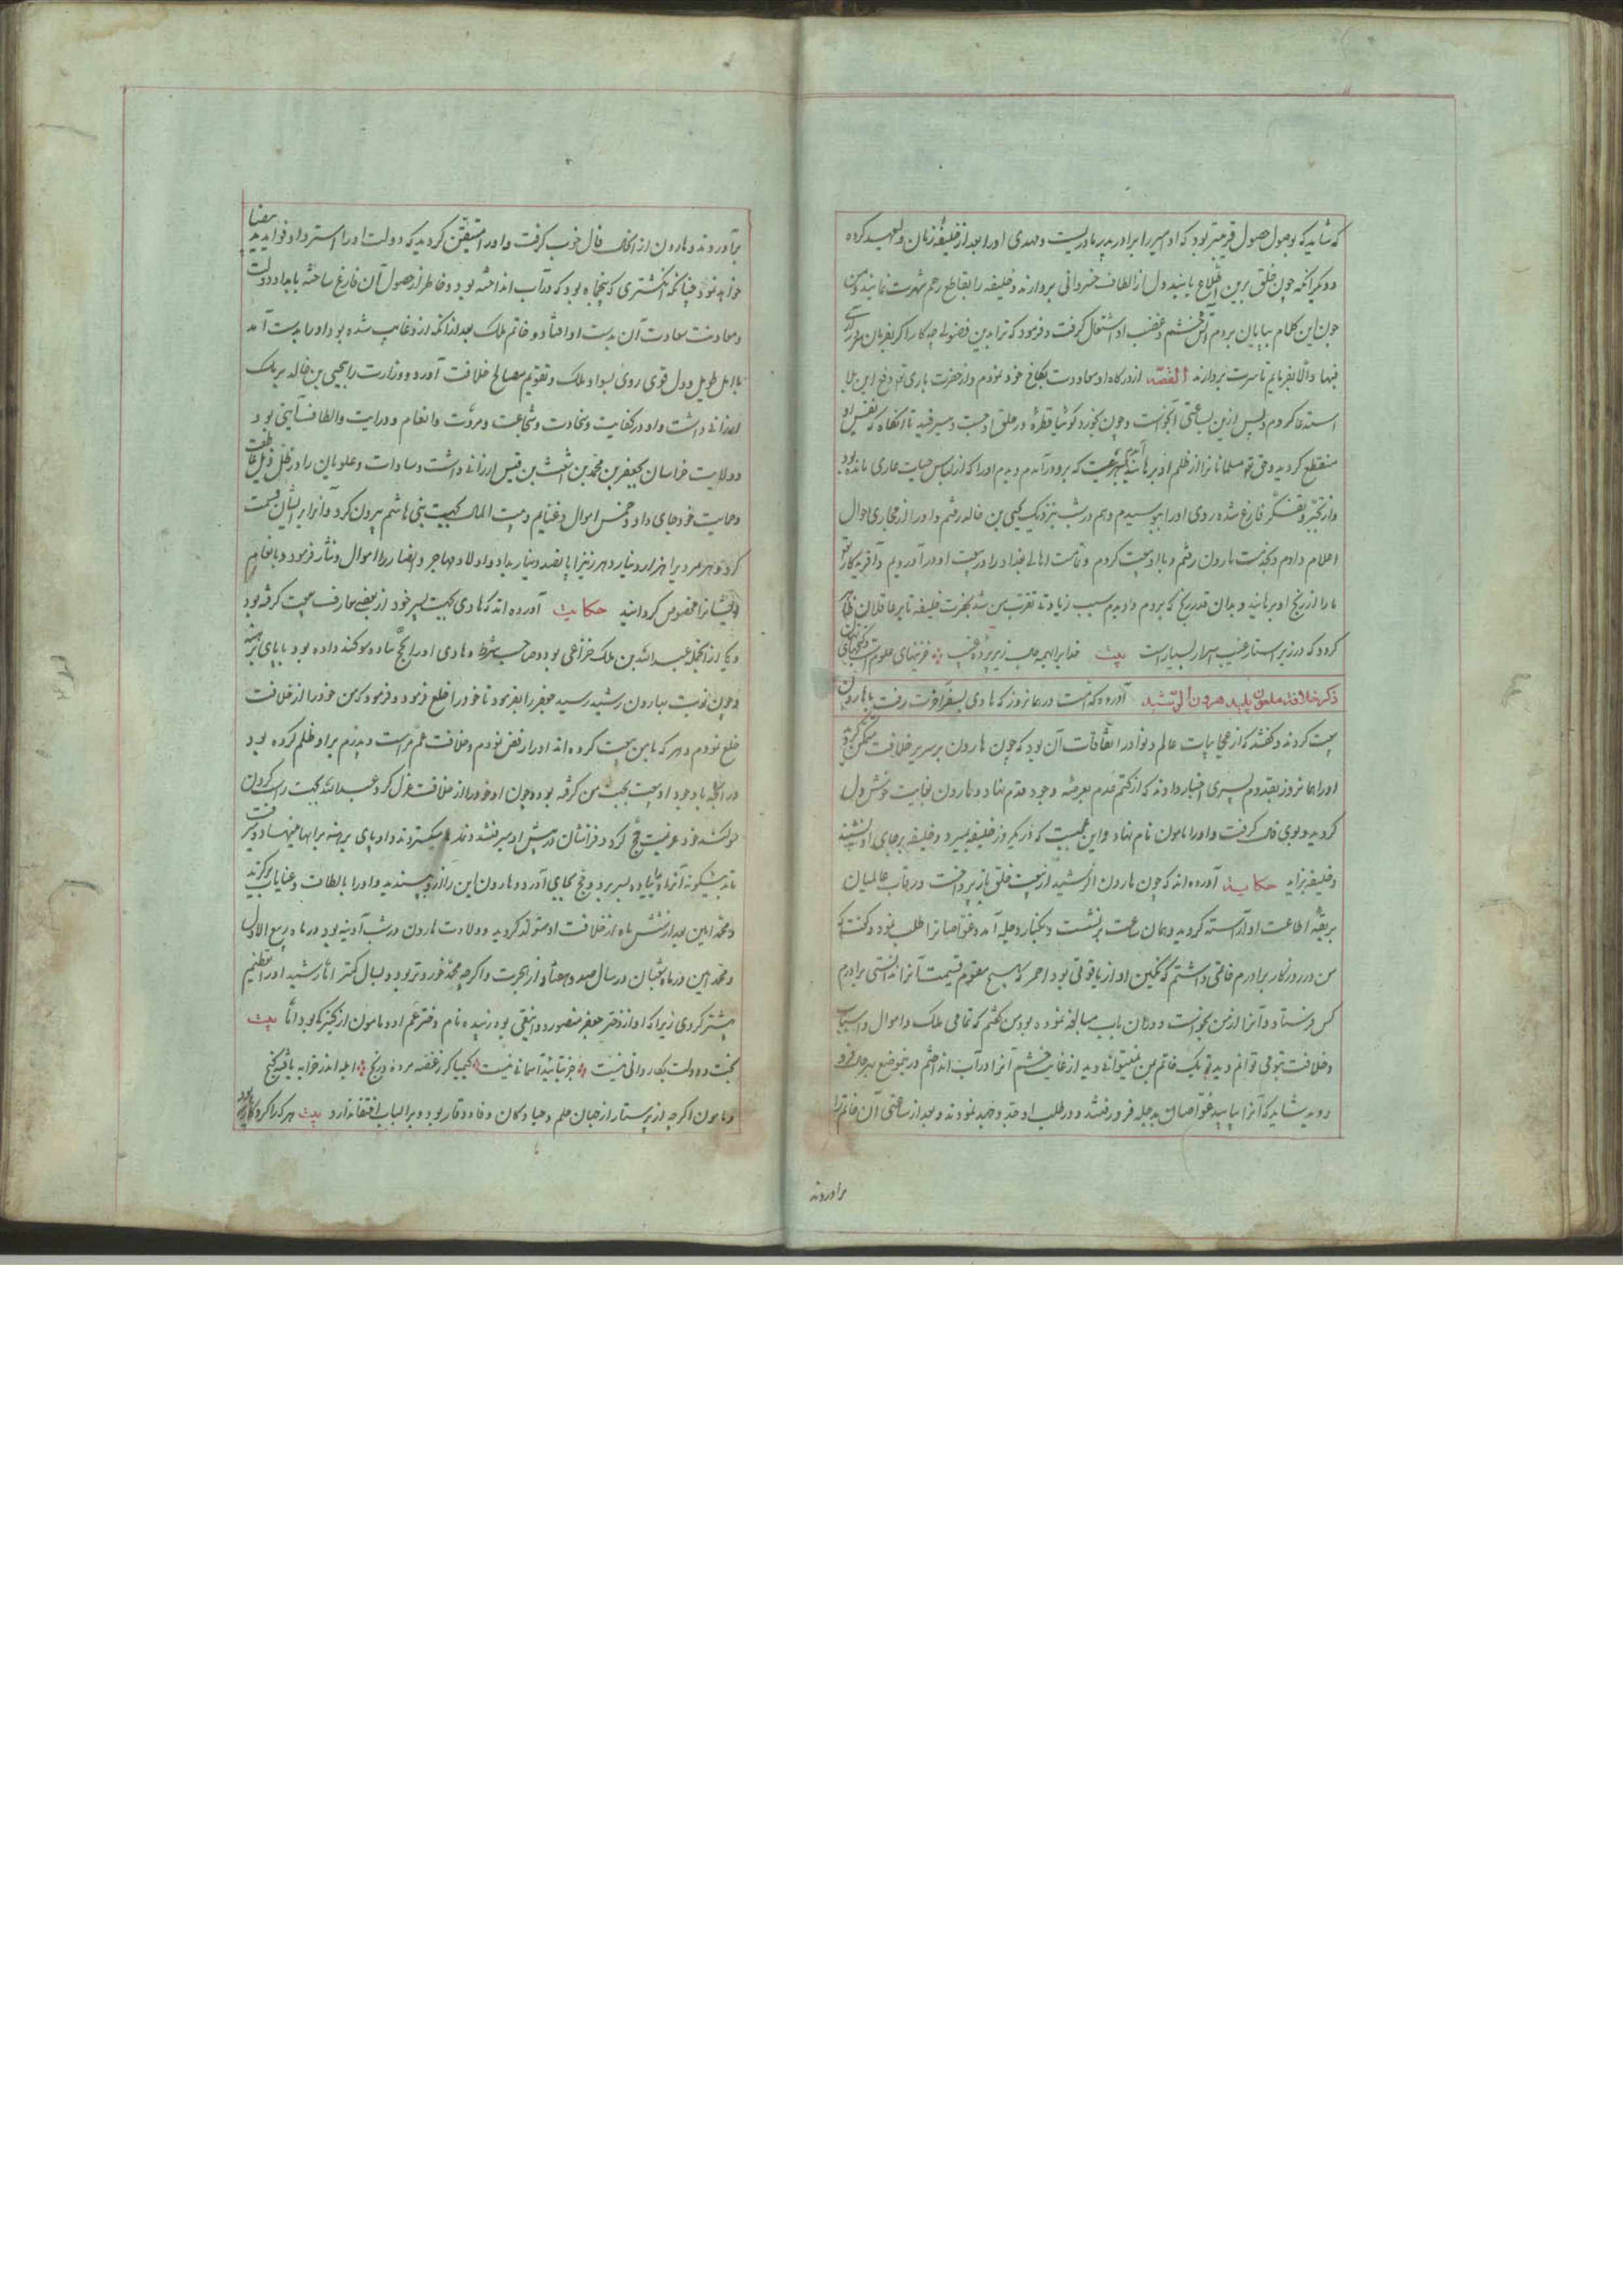 که شاید که بوصول حصول قرینتر بود که او امیر را برادر پدر مادریست و مهدی او را بعد از خلیفهٔ زمان ولیعهد کرده
و دیگر آنکه چون خلق برین اطلاع یابند دل از الطاف خسروانی بردارند و خلیفه را بقاطع رحم شهرت نمایند و من
چون این کلام بپایان بردم آتش خشم و غضب او اشتعال گرفت و فرمود که ترا بدین فضولی چه کار اگر بفرمان
فبها والا بفرمایم تا سرت بردارند القصه از درگاه او معاودت بکاخ خود نمودم و از حضرت باری تع دفع این بلا
استدعا کردم و پس از بن ساعتی آبخواست و چون بخورد گوئیا قطرهٔ در حلق او جست و میسرفید تا آنگاه که نفس او
منقطع گردید و حق تع مسلمانانرا از ظلم او برهانید که برو در آمدم و دیدم او را که از لباس حیات عاری مانده بود
و از تحیر و تفکر فارغ شده روی او را ببوسیدم و هم در شب بنزدیک یحیی بن خالد رفتم و او را از مجاری احوال
اعلام دادم و بخدمت هارون رفتم و با او بیعت کردم و تمامت اهالی بغداد را در بیعت او در آوردیم و آفریدگار تع
ما را از رنج او برهانید و بدان قدر رنج که بردم و دیدم سبب زیادتی تقرب من شد بحضرت خلیفه تا بر عاقلان ظاهر
گردد که در زیر استار غیب اسرار بسیار است بیت خدا را بهر زیر پردهٔ غیب خزینهای علومست و گنجهای نهان
ذکر خلافت ملعون پلید هرون الرشید آورده که است در همانروز که هادی بسفر آخرت رفت با هارون
بیعت کردند و گفتند که از عجایبات عالم و نوادر اتفاقات آن بود که چون هارون بر سریر خلافت متمکن گردید
او را همانروز بقدوم پسری اخبار دادند که از کتم عدم بعرصهٔ وجود قدم نهاد و هارون بغایت خوش دل
گردید و بوی فال گرفت و او را مامون نام نهاد و این عجبیست که در یکروز خلیفه بمیرد و خلیفه بر جای او بنشیند
و خلیفه بزاید حکایت آورده اند که چون هارون الرشید از بیعت خلق باز پرداخت و رقاب عالمیان
بربقهٔ اطاعت او آراسته گردید و همان ساعت برنشست و بکنار دجله آمد و غواصانرا طلب نمود و گفت که
من در روزگار برادرم خاتمی داشتم که نگین او از یاقوتی بود احمر که هیچ مقوم قیمت آنرا ندانستی برادرم
کس فرستاد و آنرا از من بخواست و در آن باب مبالغه نموده بود من گفتم که تمامی ملک و اموال و اسباب
و خلافت بتو می توانم دید و تو یک خاتم بمن نمیتوانی دید از غایت خشم آنرا در آب انداختم درینموضع بدجله فرو
روید شاید که آنرا بیابید غواصان بدجله فرو رفتند و در طلب او جد و جهد نمودند و بعد از ساعتی آن خاتم را
برآوردند
برآوردند و هارون از آن حال فال خوب گرفت و او را متیقن گردید که دولت او را استرداد فواید
خواهد نمود چنانکه انگشتری که پنجماه بود که در آب انداخته بود و خاطر از حصول آن فارغ ساخته بامداد دولت
و معاونت سعادت آن بدست او افتاد و خاتم ملک بعد از آنکه از او غایب شده بود او را بدست آمد
با امل طویل و دل قوی روی بسواد ملک و تقویم مصالح خلافت آورد و وزارت را بیحیی بن خالد برمک
ارزانی داشت و او در کفایت و سخاوت و شجاعت و مروت و انعام و درایت و الطاف آیتی بود
و ولایت خراسان بجعفر بن محمد بن اشعث بن قیس ارزانی داشت و سادات و علویان را در ظل ذیل عاطفت
و حمایت خود جای داد و خمس اموال و غنایم و بیت المال بجهت بنی هاشم بیرون کرد و آنرا بر ایشان قسمت
کرد و هر مردیرا هزار دینار و هر زنیرا پانصد دینار بداد و اولاد مهاجر و انصار را اموال و نثار فرمود و بانعام
ایشانرا مخصوص گردانید حکایت آورده اند که هادی بجهت پسر خود از بعضی معارف بیعت گرفته بود
و یکی از آنجمله عبد الله بن مالک خزاعی بود و صاحب شرط و هادی او را بحج پیاده سوگند داده بود با پای برهنه
و چون نوبت بهارون رشید رسید جعفر را بفرمود تا خود را خلع نمود و فرمود که من خود را از خلافت
خلع نمودم و هر که با من بیعت کرده اند او را رفض نمودم و خلافت عم مراست و پدرم برو ظلم کرده بود
در آنچه با وجود او بیعت بجهت من گرفته بود و چون او خود را از خلافت عزل کرد عبد الله بجهت راست کردن
سوگند خود عزیمت حج کرد و فراشان در پیش او میرفتند و نمد میگستردند و او پای برهنه بر آنها مینهاد و میرفت
تا بدینگونه آنراه را پیاده بسر برد و حج بجای آورد و هارون این را ازو بپسندید و او را بالطاف و عنایات
و محمد امین بعد از شش ماه از خلافت او متولد گردید و ولادت هارون در شب آدینه بود در ماه ربیع الاول
و محمد امین در ماه شعبان در سال صد و هفتاد از هجرت و اگرچه محمد خوردتر بود و بسال کمتر اما رشید او را تعظیم
بیشتر کردی زیرا که او از دختر جعفر منصور دوانیقی بود زبیده نام و دختر عم او و مامون از کنیزک بود اما بیت
بخت و دولت بکاردانی نیست جز بتایید آسمانی نیست کیمیاگر ز غصه مرده و رنج ابله اندر خرابه یافته گنج
و مامون اگرچه از پرستار از جهان حلم و حیا و کان وفا و وقار بود و برالباب افتقار دارد بیت هر که را کردگار